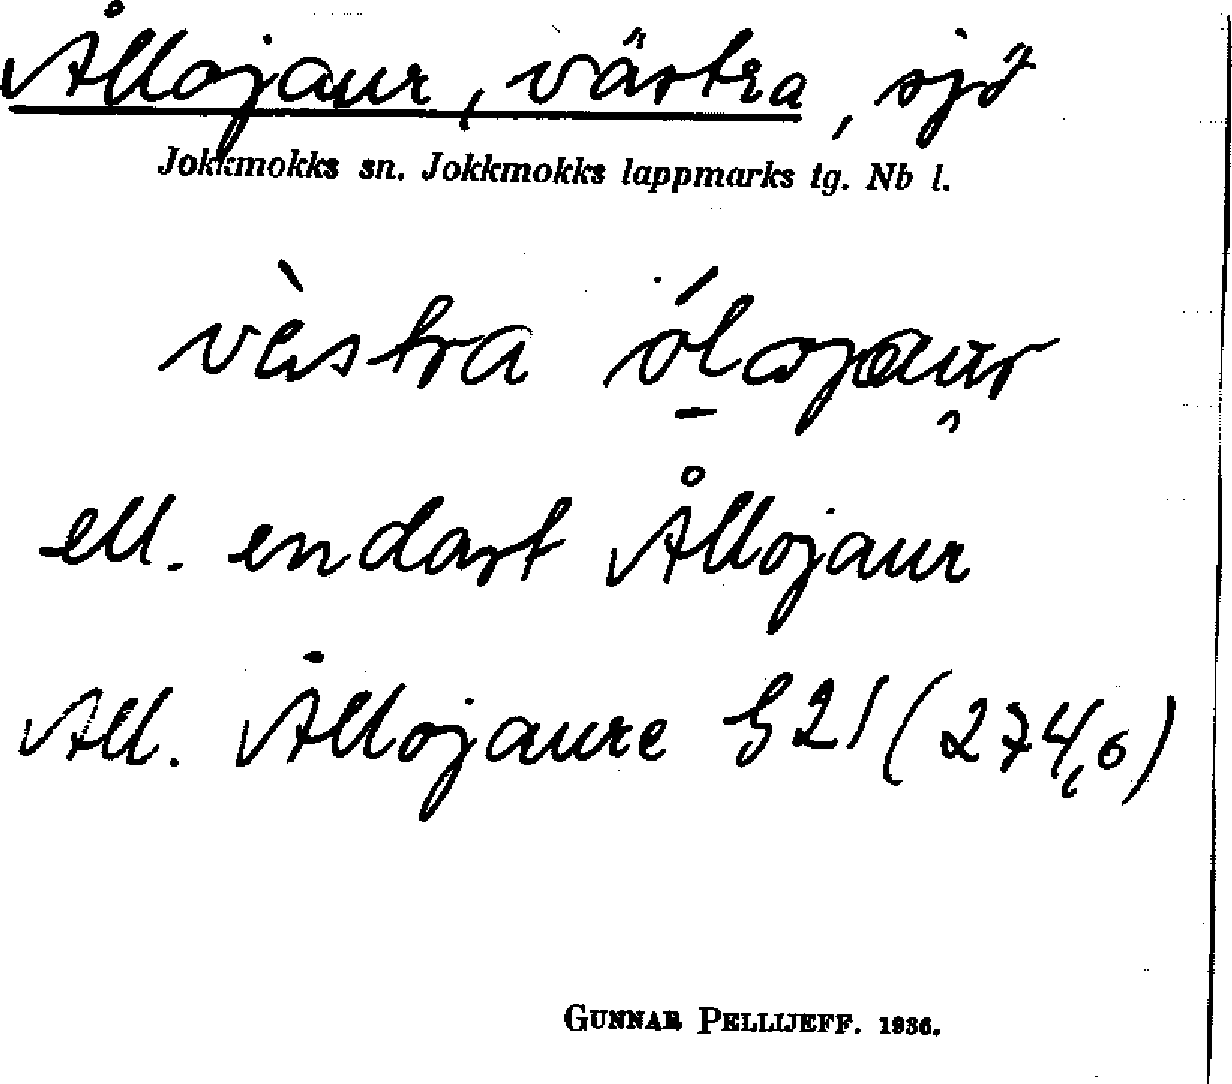 Ållojaur, västra, sjö
Jokkmokks sn. Jokkmokks lappmarks tg. Nb l.
vèstra ó̱lojau̯r
ell. endast Ållojaur
All. Ållojaure G21 (274,6)
GUNNAR PELLIJEFF. 1936.